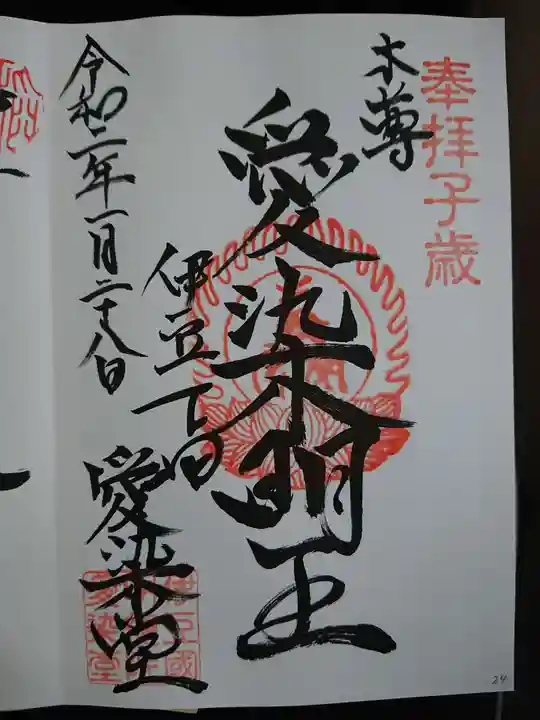 奉拝子歳
本尊
愛染明王
伊豆下田
愛染堂
令和二年一月二十八日
伊豆國
愛染堂
24